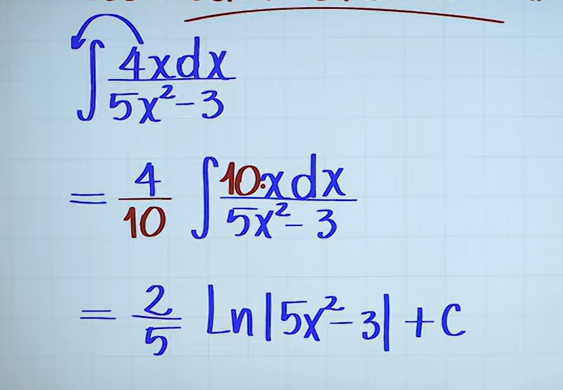 ∫ 4xdx / 5x² - 3
= 4/10 ∫ 10·xdx / 5x² - 3
= 2/5 Ln|5x² - 3| + C